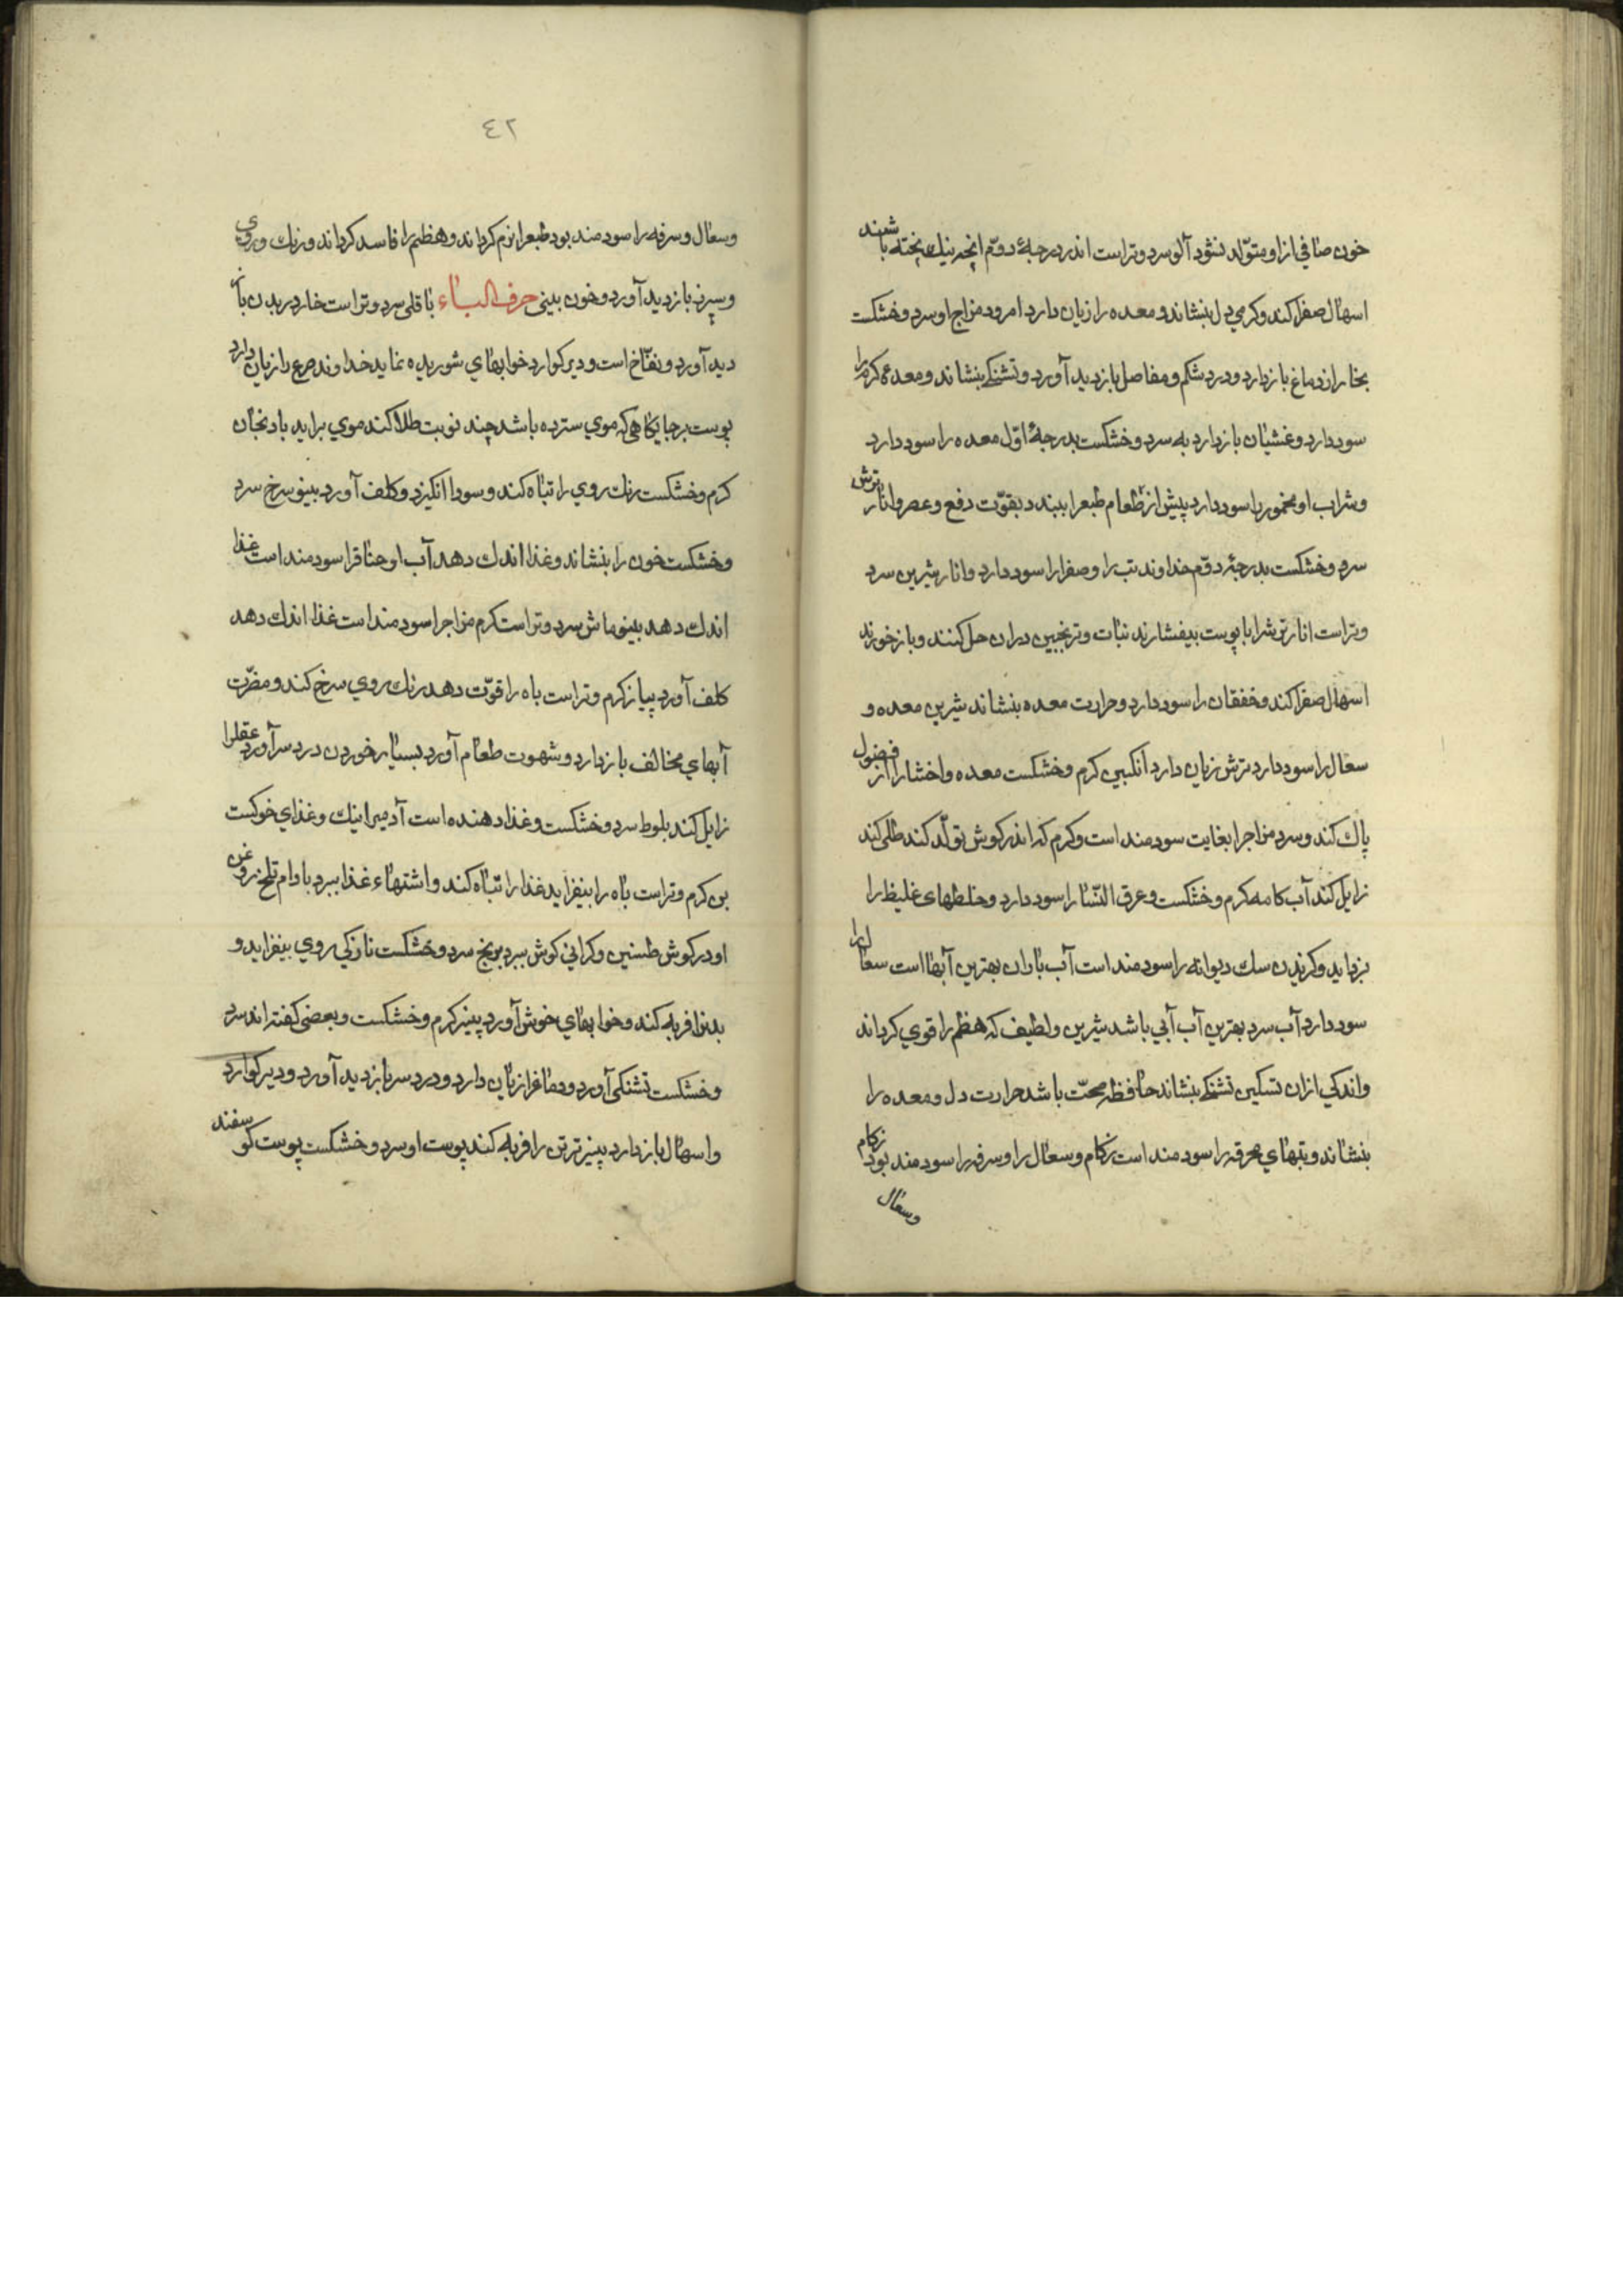 خون صافی ازاو متولّد نشود آلو سرد وتراست اندر درجهٔ دوّم انچه نیك پخته باشند
اسهال صفرا کند وکرمی دل بنشاند ومعده را زیان دارد امرود مزاج او سرد وخشکست
بخار از دماغ بازدارد ودرد شکم ومفاصل بازدید آورد وتشنکی بنشاند ومعدهٔ کرم را
سود دارد وغشیان بازدارد به سرد وخشکست بدرجهٔ اوّل معده را سود دارد
وشراب او مخمور را سود دارد پیش از طعام طبعرا ببندد بقوّت دفع وعصر وانار ترش
سرد وخشکست بدرجهٔ دوّم خداوند تب را وصفرا را سود دارد وانار شیرین سرد
وتراست انار ترشرا با پوست بیفشارند نبات وترنجبین دران حل کنند وباز خورند
اسهال صفرا کند وخفقان را سود دارد وحرارت معده بنشاند شیرین معده و
سعال را سود دارد ترش زیان دارد انکبین کرم وخشکست معده واحشا را از فضول
پاك کند وسرد مزاجرا بغایت سودمند است وکرم که اندر کوش تولّد کند طلی کند
زایل کند آب کامه کرم وخشکست وعرق النّسا را سود دارد وخلطهای غلیظ را
بزداید وکزیدن سك دیوانه را سودمند است آب باران بهترین آبها است سعال را
سود دارد آب سرد بهترین آب آبی باشد شیرین ولطیف که هظم را قوی کرداند
واندکی ازان تسکین تشنکی بنشاند حافظ صحّت باشد حرارت دل ومعده را
بنشاند وتبهای محرقه را سودمند است زکام وسعال را وسرفه را سودمند بود زکام
وسعال
٤٢
وسعال وسرفه را سودمند بود طبعرا نرم کرداند وهظم را فاسد کرداند ورنك وروی
وسپرز بازدید آورد وخون بینی حرف الباء باقلی سرد وتراست خارد در بدن باز
دید آورد ونفّاخ است ودیر کوارد خوابهای شوریده نماید خداوند صرع را زیان دارد
پوست بر جایکاهی که موی سترده باشد چند نوبت طلا کند موی براید بادنجان
کرم وخشکست رنك روی را تباه کند وسودا انکیزد وکلف آورد بینو سرخ سرد
وخشکست خون را بنشاند وغذا اندك دهد آب او خناقرا سودمند است غذا
اندك دهد بینو ماش سرد وتراست کرم مزاجرا سودمند است غذا اندك دهد
کلف آورد پیاز کرم وتراست باه را قوّت دهد رنك روی سرخ کند ومضرّت
آبهای مخالف بازدارد وشهوت طعام آورد بسیار خوردن درد سر آورد عقلرا
زایل کند بلوط سرد وخشکست وغذا دهنده است آدمیرا نیك وغذای خوکست
بن کرم وتراست باه را بیفزاید غذا را تباه کند واشتهاء غذا ببرد بادام تلخ روغن
او در کوش طنین وکرانی کوش ببرد برنج سرد وخشکست تازکی روی بیفزاید و
بدنرا فربه کند وخوابهای خوش آورد پنیر کرم وخشکست وبعضی کفته اند سرد
وخشکست تشنکی آورد ودماغرا زیان دارد ودرد سر بازدید آورد ودیر کوارد
واسهال بازدارد پنیر تر تن را فربه کند پوست او سرد وخشکست پوست کوسفند